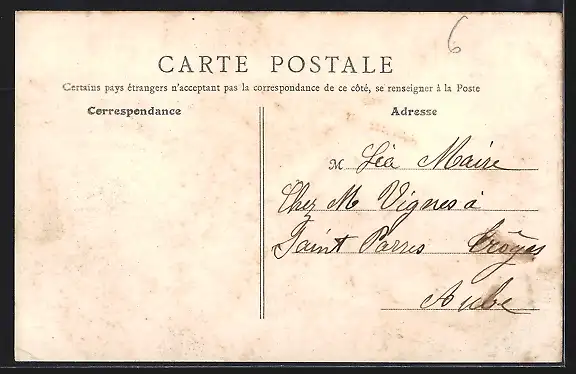 6
CARTE POSTALE
Certains pays étrangers n'acceptant pas la correspondance de ce côté, se renseigner à la Poste
Correspondance
Adresse
M Léa Maire
Chez M Vignes à
Saint Parres Troyes
Aube